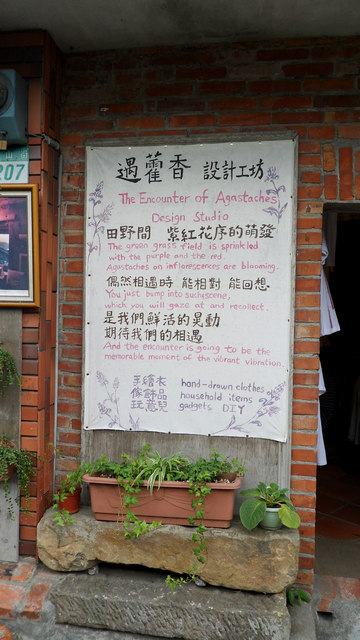 207
遇藿香 設計工坊
The Encounter of Agastaches
Design Studio
田野間 紫紅花序的萌發
The green grass field is sprinkled
with the purple and the red.
Agastaches on inflorescences are blooming.
偶然相遇時 能相對 能回想
You just bump into such scene,
which you will gaze at and recollect.
是我們鮮活的晃動
期待我們的相遇
And the encounter is going to be the
memorable moment of the vibrant vibration.
手繪衣 hand-drawn clothes
傢飾品 household items
玩意兒 gadgets DIY